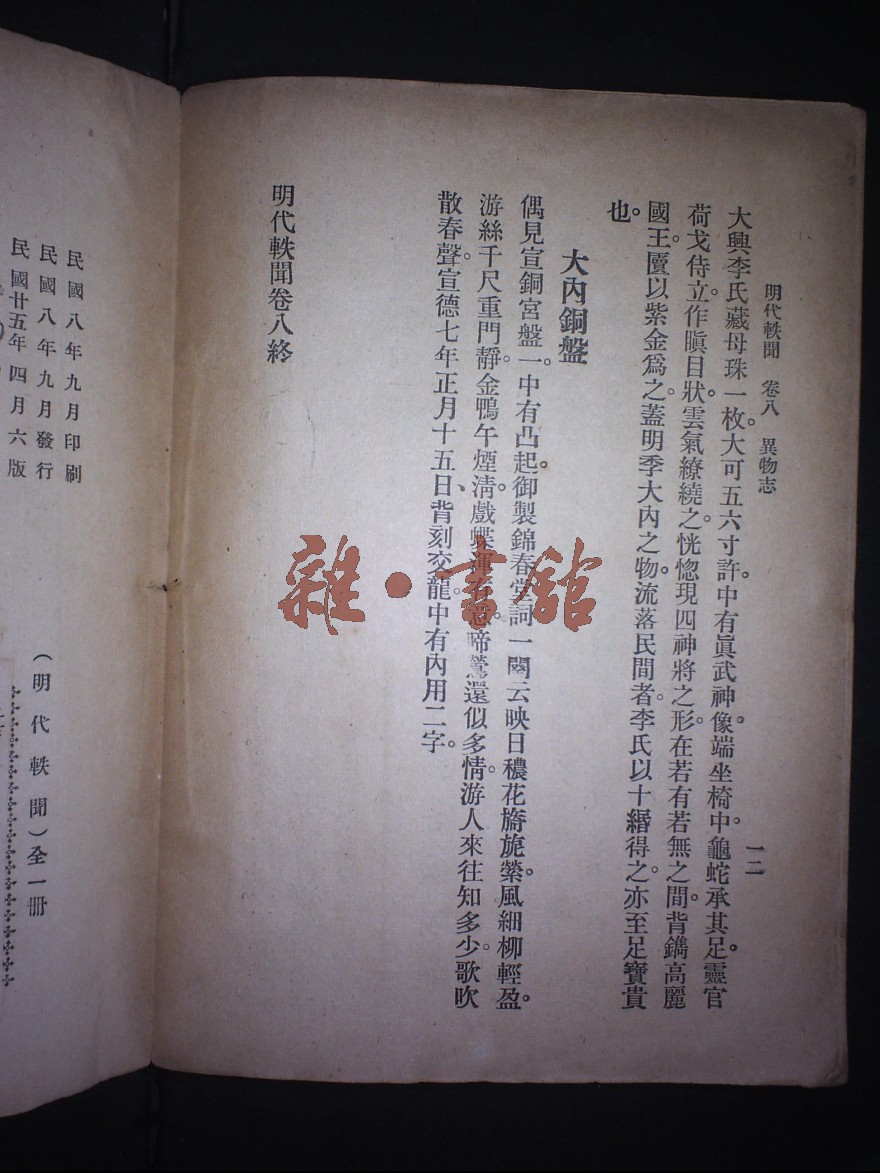 明代軼聞 卷八 異物志 一二
大興李氏藏母珠一枚。大可五六寸許。中有眞武神像。端坐椅中。龜蛇承其足。靈官
荷戈侍立。作瞋目狀。雲氣繚繞之。恍惚現四神將之形。在若有若無之間。背鐫高麗
國王。匵以紫金爲之。蓋明季大內之物。流落民間者。李氏以十緡得之。亦至足寶貴
也。
大內銅盤
偶見宣銅宮盤一。中有凸起。御製錦春堂詞一闋云。映日穠花旖旎。縈風細柳輕盈。
游絲千尺重門靜。金鴨午煙淸。戲蝶渾有意。啼鶯還似多情。游人來往知多少。歌吹
散春聲。宣德七年正月十五日、背刻交龍。中有內用二字。
明代軼聞卷八終
雜·書館
民國八年九月印刷
民國八年九月發行
民國廿五年四月六版
(明代軼聞)全一冊